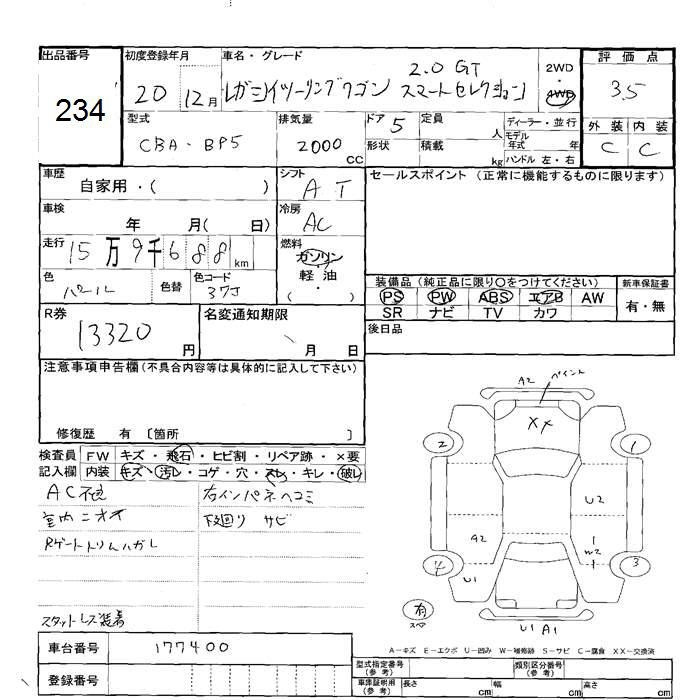 出品番号
234
初度登録年月
20 12月
車名・グレード
レガシィツーリングワゴン 2.0 GT スマートセレクション
2WD
4WD
評価点
3.5
外装 内装
C C
型式
CBA-BP5
排気量
2000 CC
ドア 5
形状
定員 人
積載 kg
ディーラー・並行
モデル年式 年
ハンドル 左・右
車歴
自家用・( )
シフト
AT
セールスポイント (正常に機能するものに限ります)
車検
年 月( 日)
冷房
AC
走行
15万9千688km
燃料
ガソリン
軽油
( )
色
パール
色替
色コード
37J
装備品 (純正品に限り○をつけてください)
PS PW ABS エアB AW
SR ナビ TV カワ
新車保証書
有・無
後日品
R券
13320円
名変通知期限
月 日
注意事項申告欄 (不具合内容等は具体的に記入して下さい)
修復歴 有 〔箇所 〕
検査員記入欄
FW キズ・飛石・ヒビ割・リペア跡・×要
内装 キズ・汚レ・コゲ・穴・スレ・キレ・破レ
AC不良
右インパネヘコミ
室内ニオイ
下廻リ サビ
Rゲートトリムハガレ
スタットレス装着
A2 ペイント
XX
2
1
U2
A2
W2
4
3
U1
有
スペア
U1 A1
A-キズ E-エクボ U-凹み W-補修跡 S-サビ C-腐食 XX-交換済
車台番号
177400
登録番号
型式指定番号(参考)
類別区分番号(参考)
車庫証明用(参考)
長さ cm
幅 cm
高さ cm